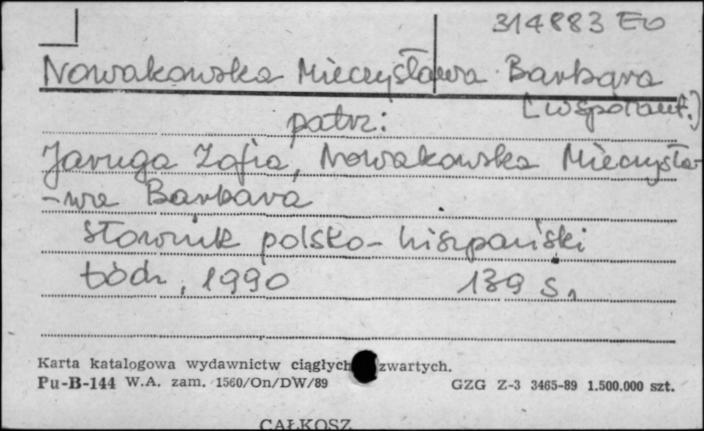 314883 Eo
Nowakowska Mieczysława Barbara
[współaut.]
patrz:
Jaruga Zofia, Nowakowska Mieczysła-
-wa Barbara
Słownik polsko-hiszpański
Łódź, 1990 139 s.
Karta katalogowa wydawnictw ciągłych zwartych.
Pu-B-144 W.A. zam. 1560/On/DW/89 GZG Z-3 3465-89 1.500.000 szt.
CAŁKOSZ